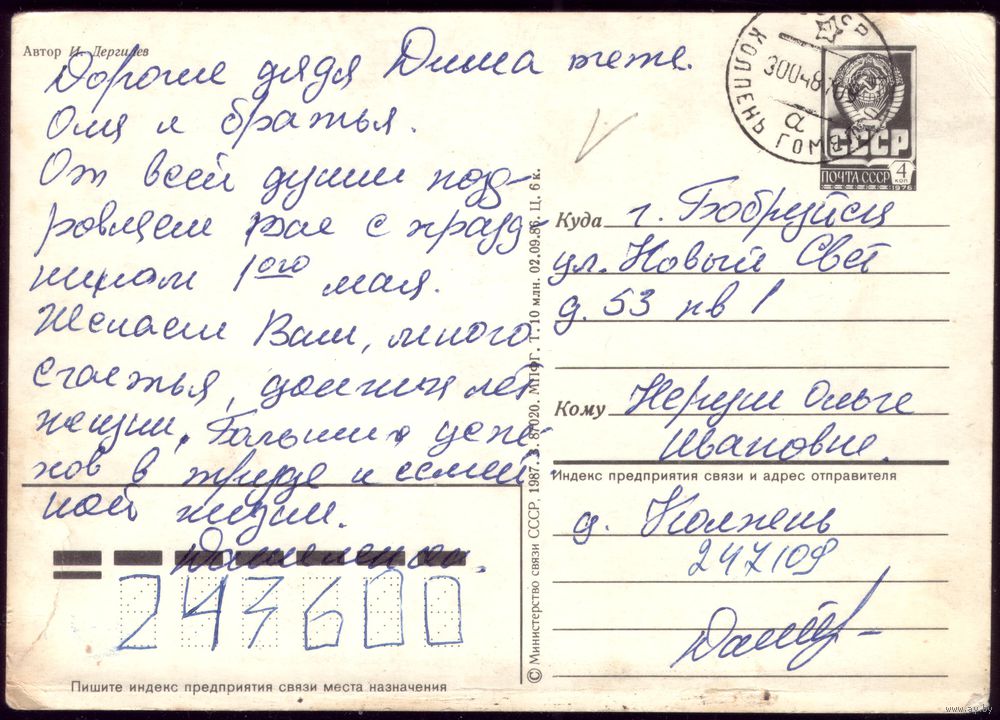 Автор И. Дергилев
Дорогие дядя Дима тетя.
Оля и братья.
От всей души позд-
ровляем вас с празд-
ником 1ого мая.
Желаем Вам, много
счастья, долгих лет
жизни. Больших успе-
хов в труде и семей
ной жизни.
243600
Пишите индекс предприятия связи места назначения
© Министерство связи СССР, 1987. З. 87020. МПФГ. Т. 10 млн. 02.09.86. Ц. 6 к.
КОЛПЕНЬ ГОМЕЛ
СССР
300487
а
СССР
ПОЧТА СССР 4 КОП
1976
Куда г. Бобруйск
ул. Новый Свет
д. 53 кв 1
Кому Ольге
Ивановне.
Индекс предприятия связи и адрес отправителя
д. Колпень
247109
www.ay.by